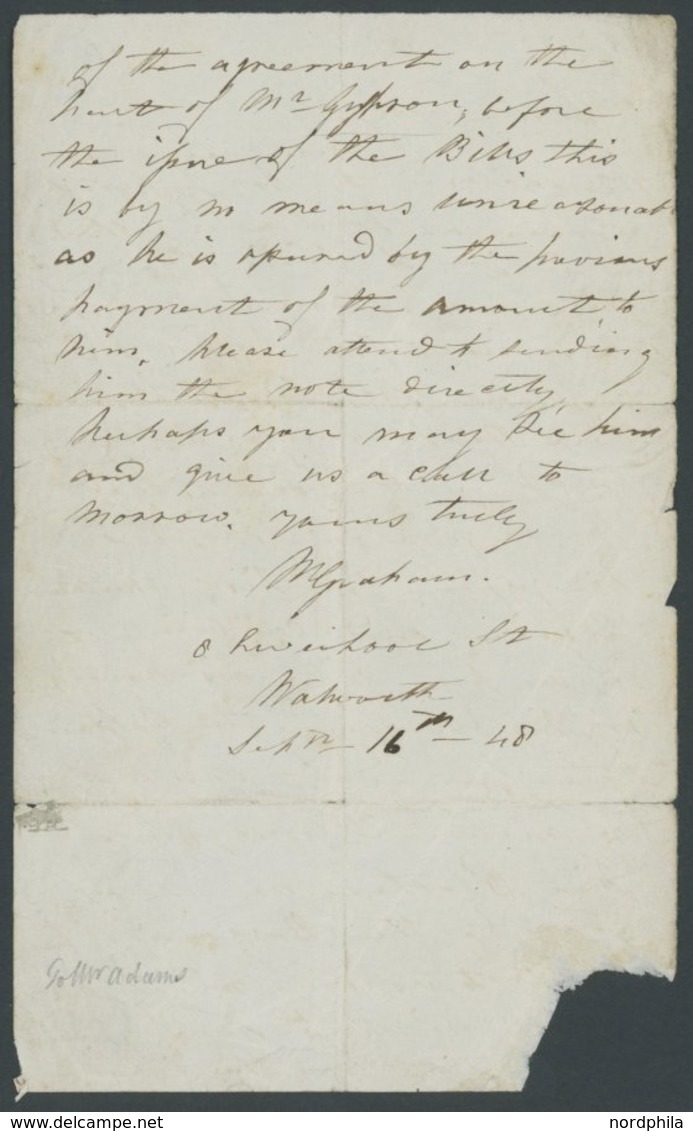 of the agreement on the
part of Mr before
the issue of the Bills this
is by no means unreasonab
as he is by the previous
payment of the amount to
him, please attend to sending
him the note directly
perhaps you may see him
and give us a call to
morrow. yours truly
M Graham.
8 Liverpool St
Walworth
Sepr 16th - 48
To Mr Adams
www.delcampe.net
nordphila